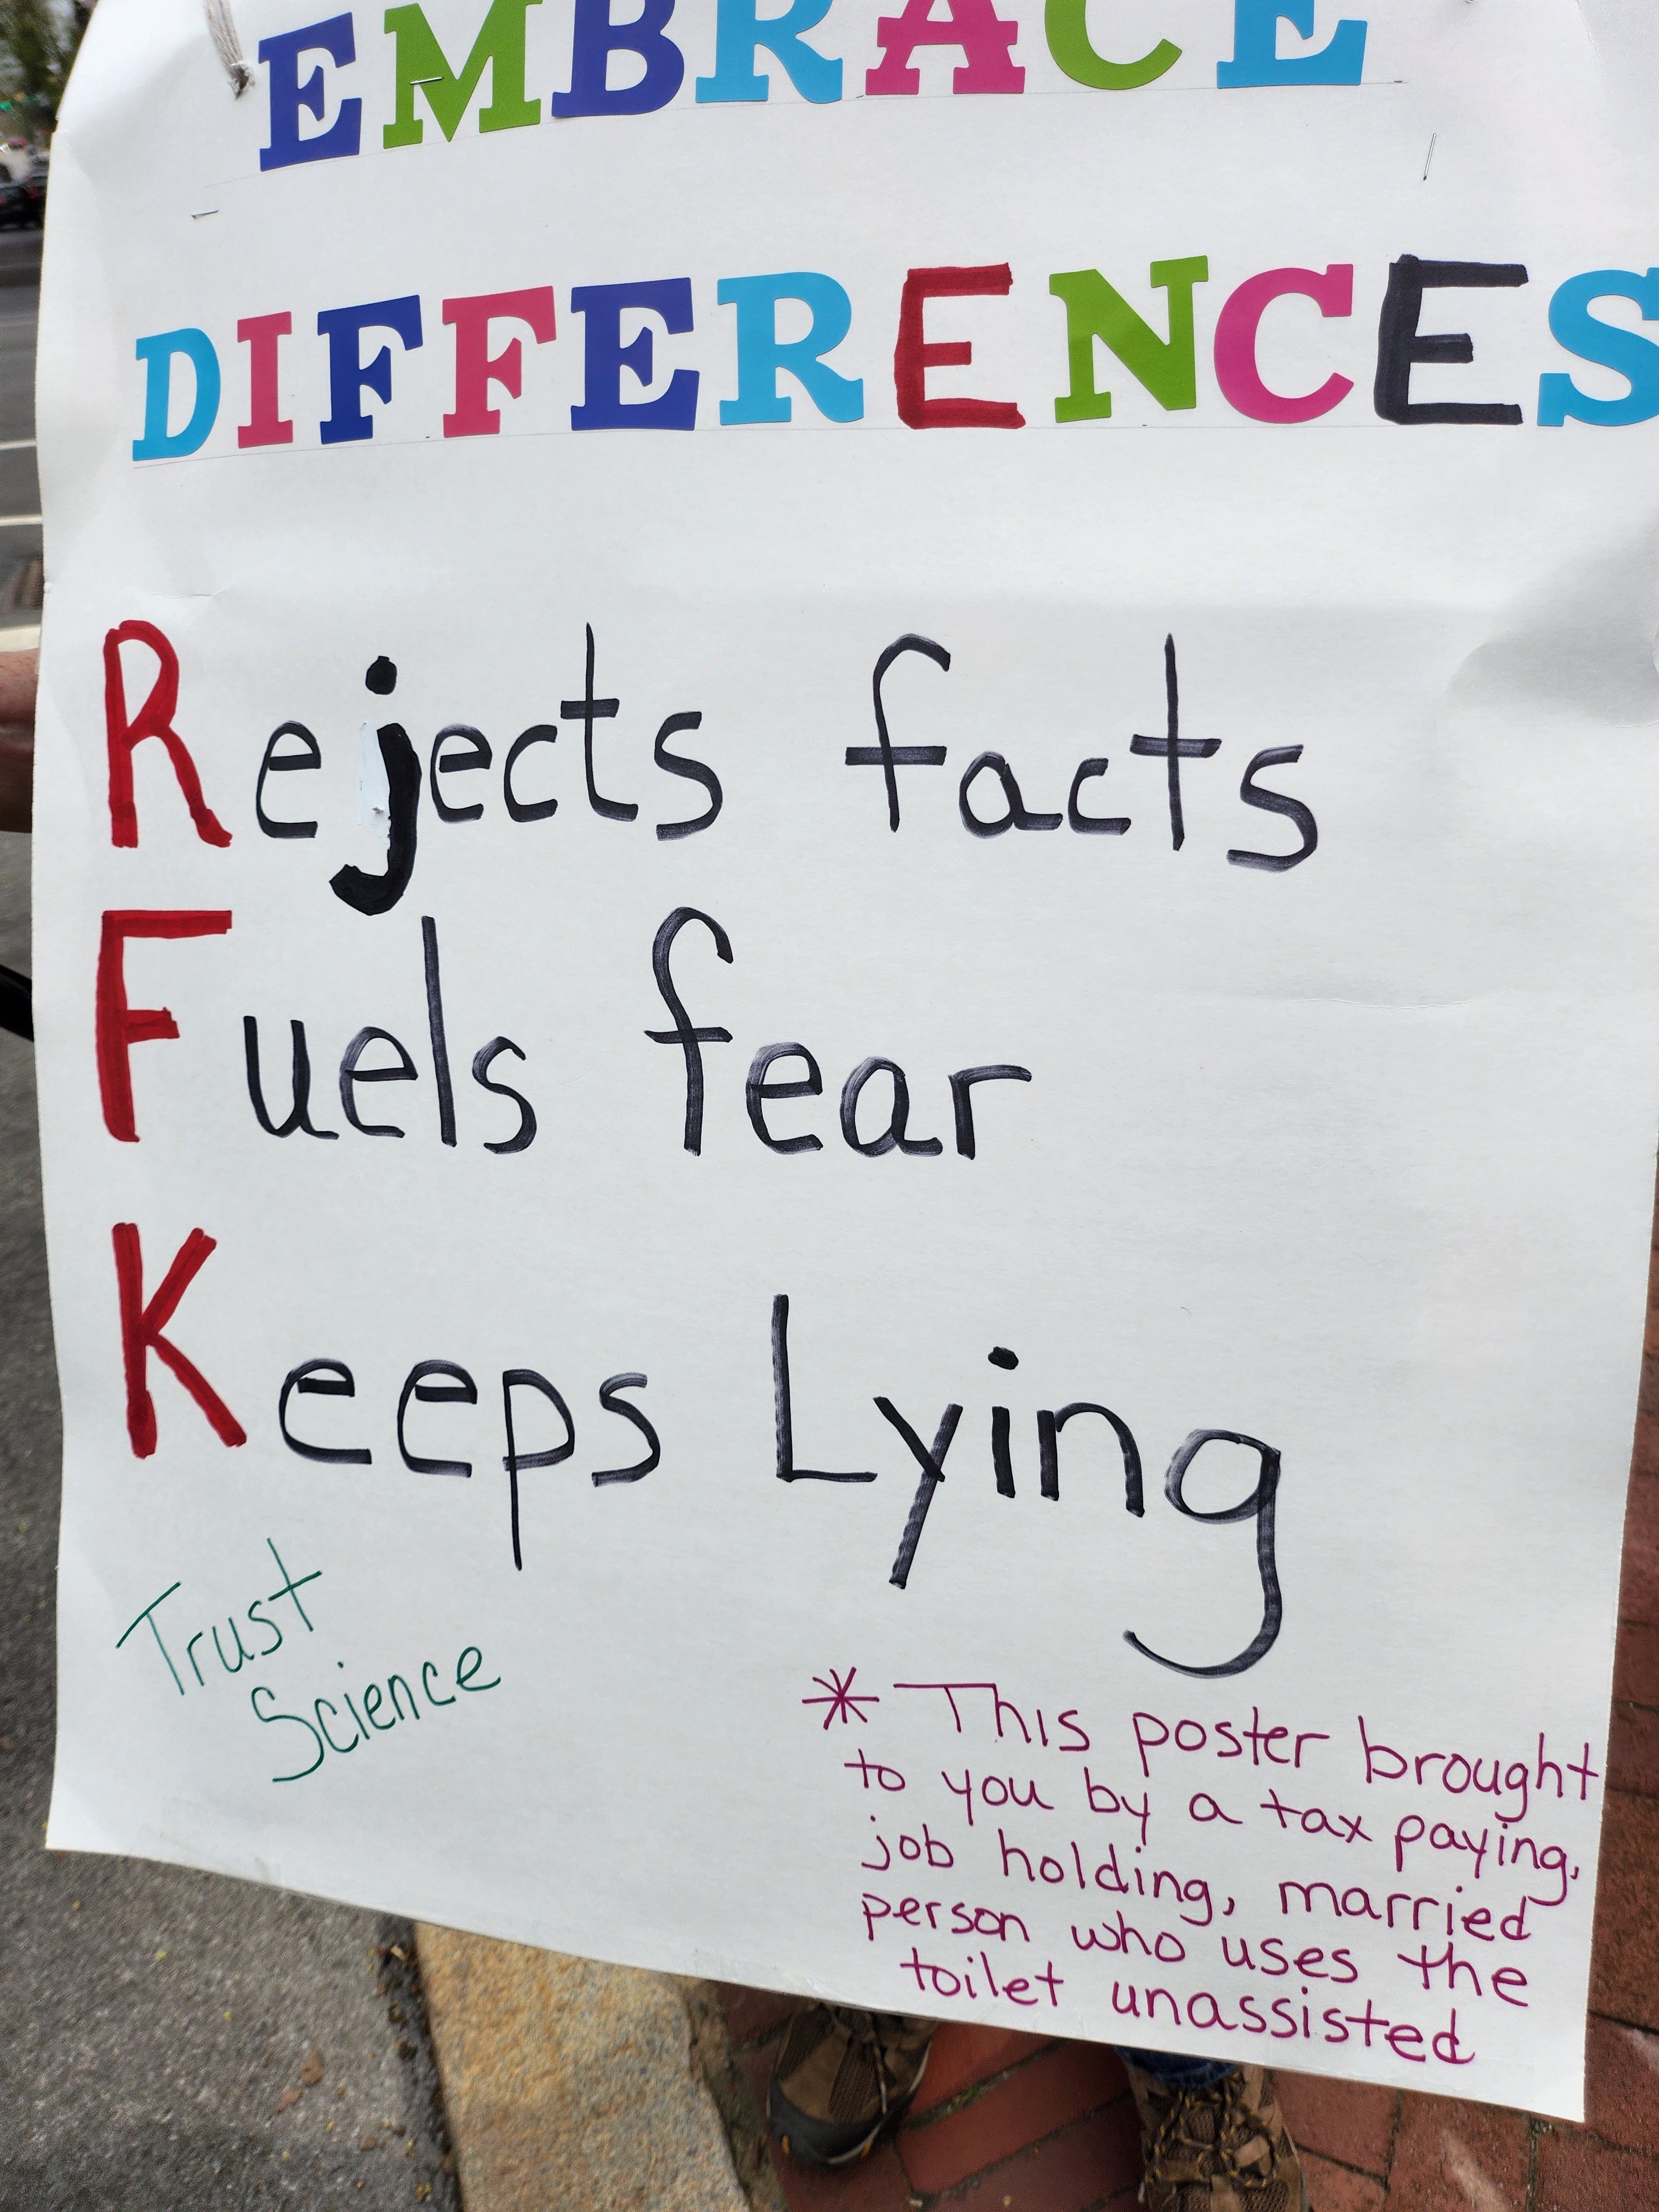 EMBRACE
DIFFERENCES
Rejects facts
Fuels fear
Keeps Lying
Trust
Science
* This poster brought
to you by a tax paying,
job holding, married
person who uses the
toilet unassisted